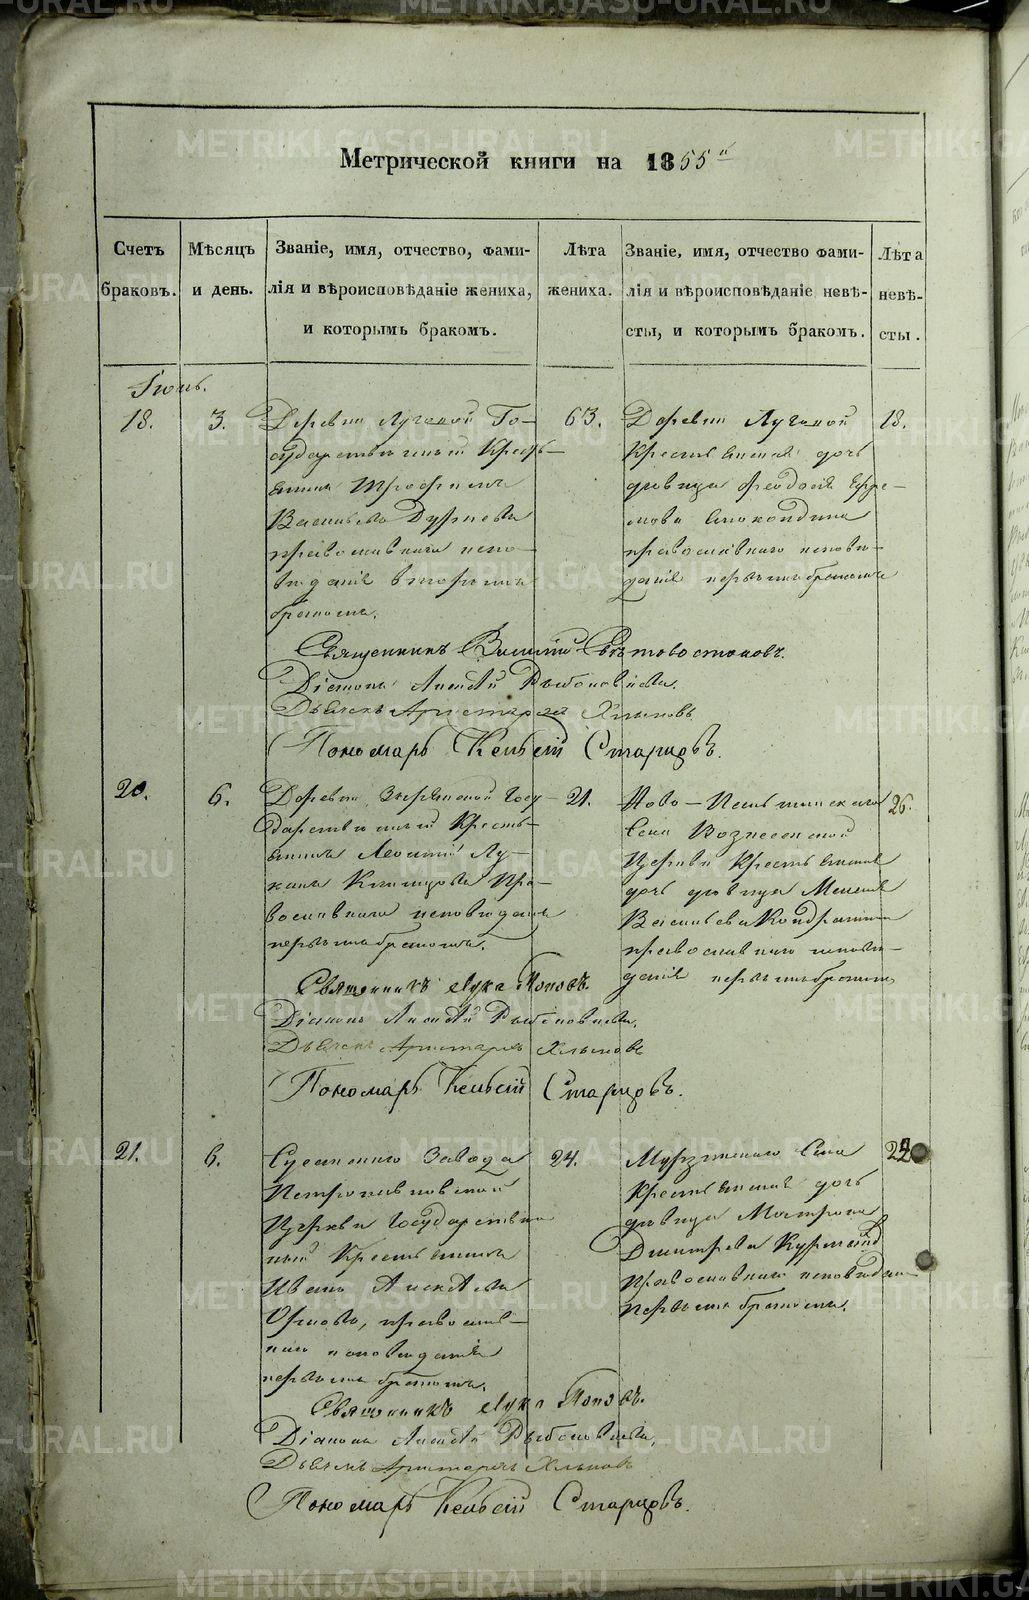 Метрической книги на 1855й
Счетъ браковъ.
Мѣсяцъ и день.
Званіе, имя, отчество, фами-
лія и вѣроисповѣданіе жениха,
и которымъ бракомъ.
Лѣта
жениха.
Званіе, имя, отчество фами-
лія и вѣроисповѣданіе невѣ-
сты, и которымъ бракомъ.
Лѣта
невѣ-
сты.
18.
3.
Деревни Го-
сударственный Кресть-
янинъ Трофимъ
Васильевъ
православнаго испо-
вѣданія вторымъ
бракомъ.
63.
Деревни
Крестьянская дочь
дѣвица Феодосія Ефре-
мова
православнаго исповѣ-
данія первымъ бракомъ
18.
Священникъ Василій Свѣтовостоковъ.
Діаконъ Алексѣй
Дьячекъ Аристархъ Хлыновъ
Пономарь Старцовъ.
20.
6.
Деревни Госу-
дарственный Кресть-
янинъ Леонтій Лу-
кинъ Пра-
вославнаго исповѣданія
первымъ бракомъ.
21.
Ново-
Села Вознесенской
Церкви Крестьянская
дочь дѣвица
Васильева Кондратина
православнаго исповѣ-
данія первымъ бракомъ
26.
Священникъ Лука Поповъ.
Діаконъ Алексѣй
Дьячекъ Аристархъ Хлыновъ
Пономарь Старцовъ.
21.
6.
Сусанскаго Завода
Петропавловской
Церкви Государствен
ный Крестьянинъ
Иванъ Алексѣевъ
православ-
наго исповѣданія
первымъ бракомъ.
24.
Мурзинскаго Села
Крестьянская дочь
дѣвица Матрона
Дмитрева
Православнаго исповѣданія
первымъ бракомъ.
22
Священникъ Лука Поповъ.
Діаконъ Алексѣй
Дьячекъ Аристархъ Хлыновъ
Пономарь Старцовъ.
METRIKI.GASO-URAL.RU